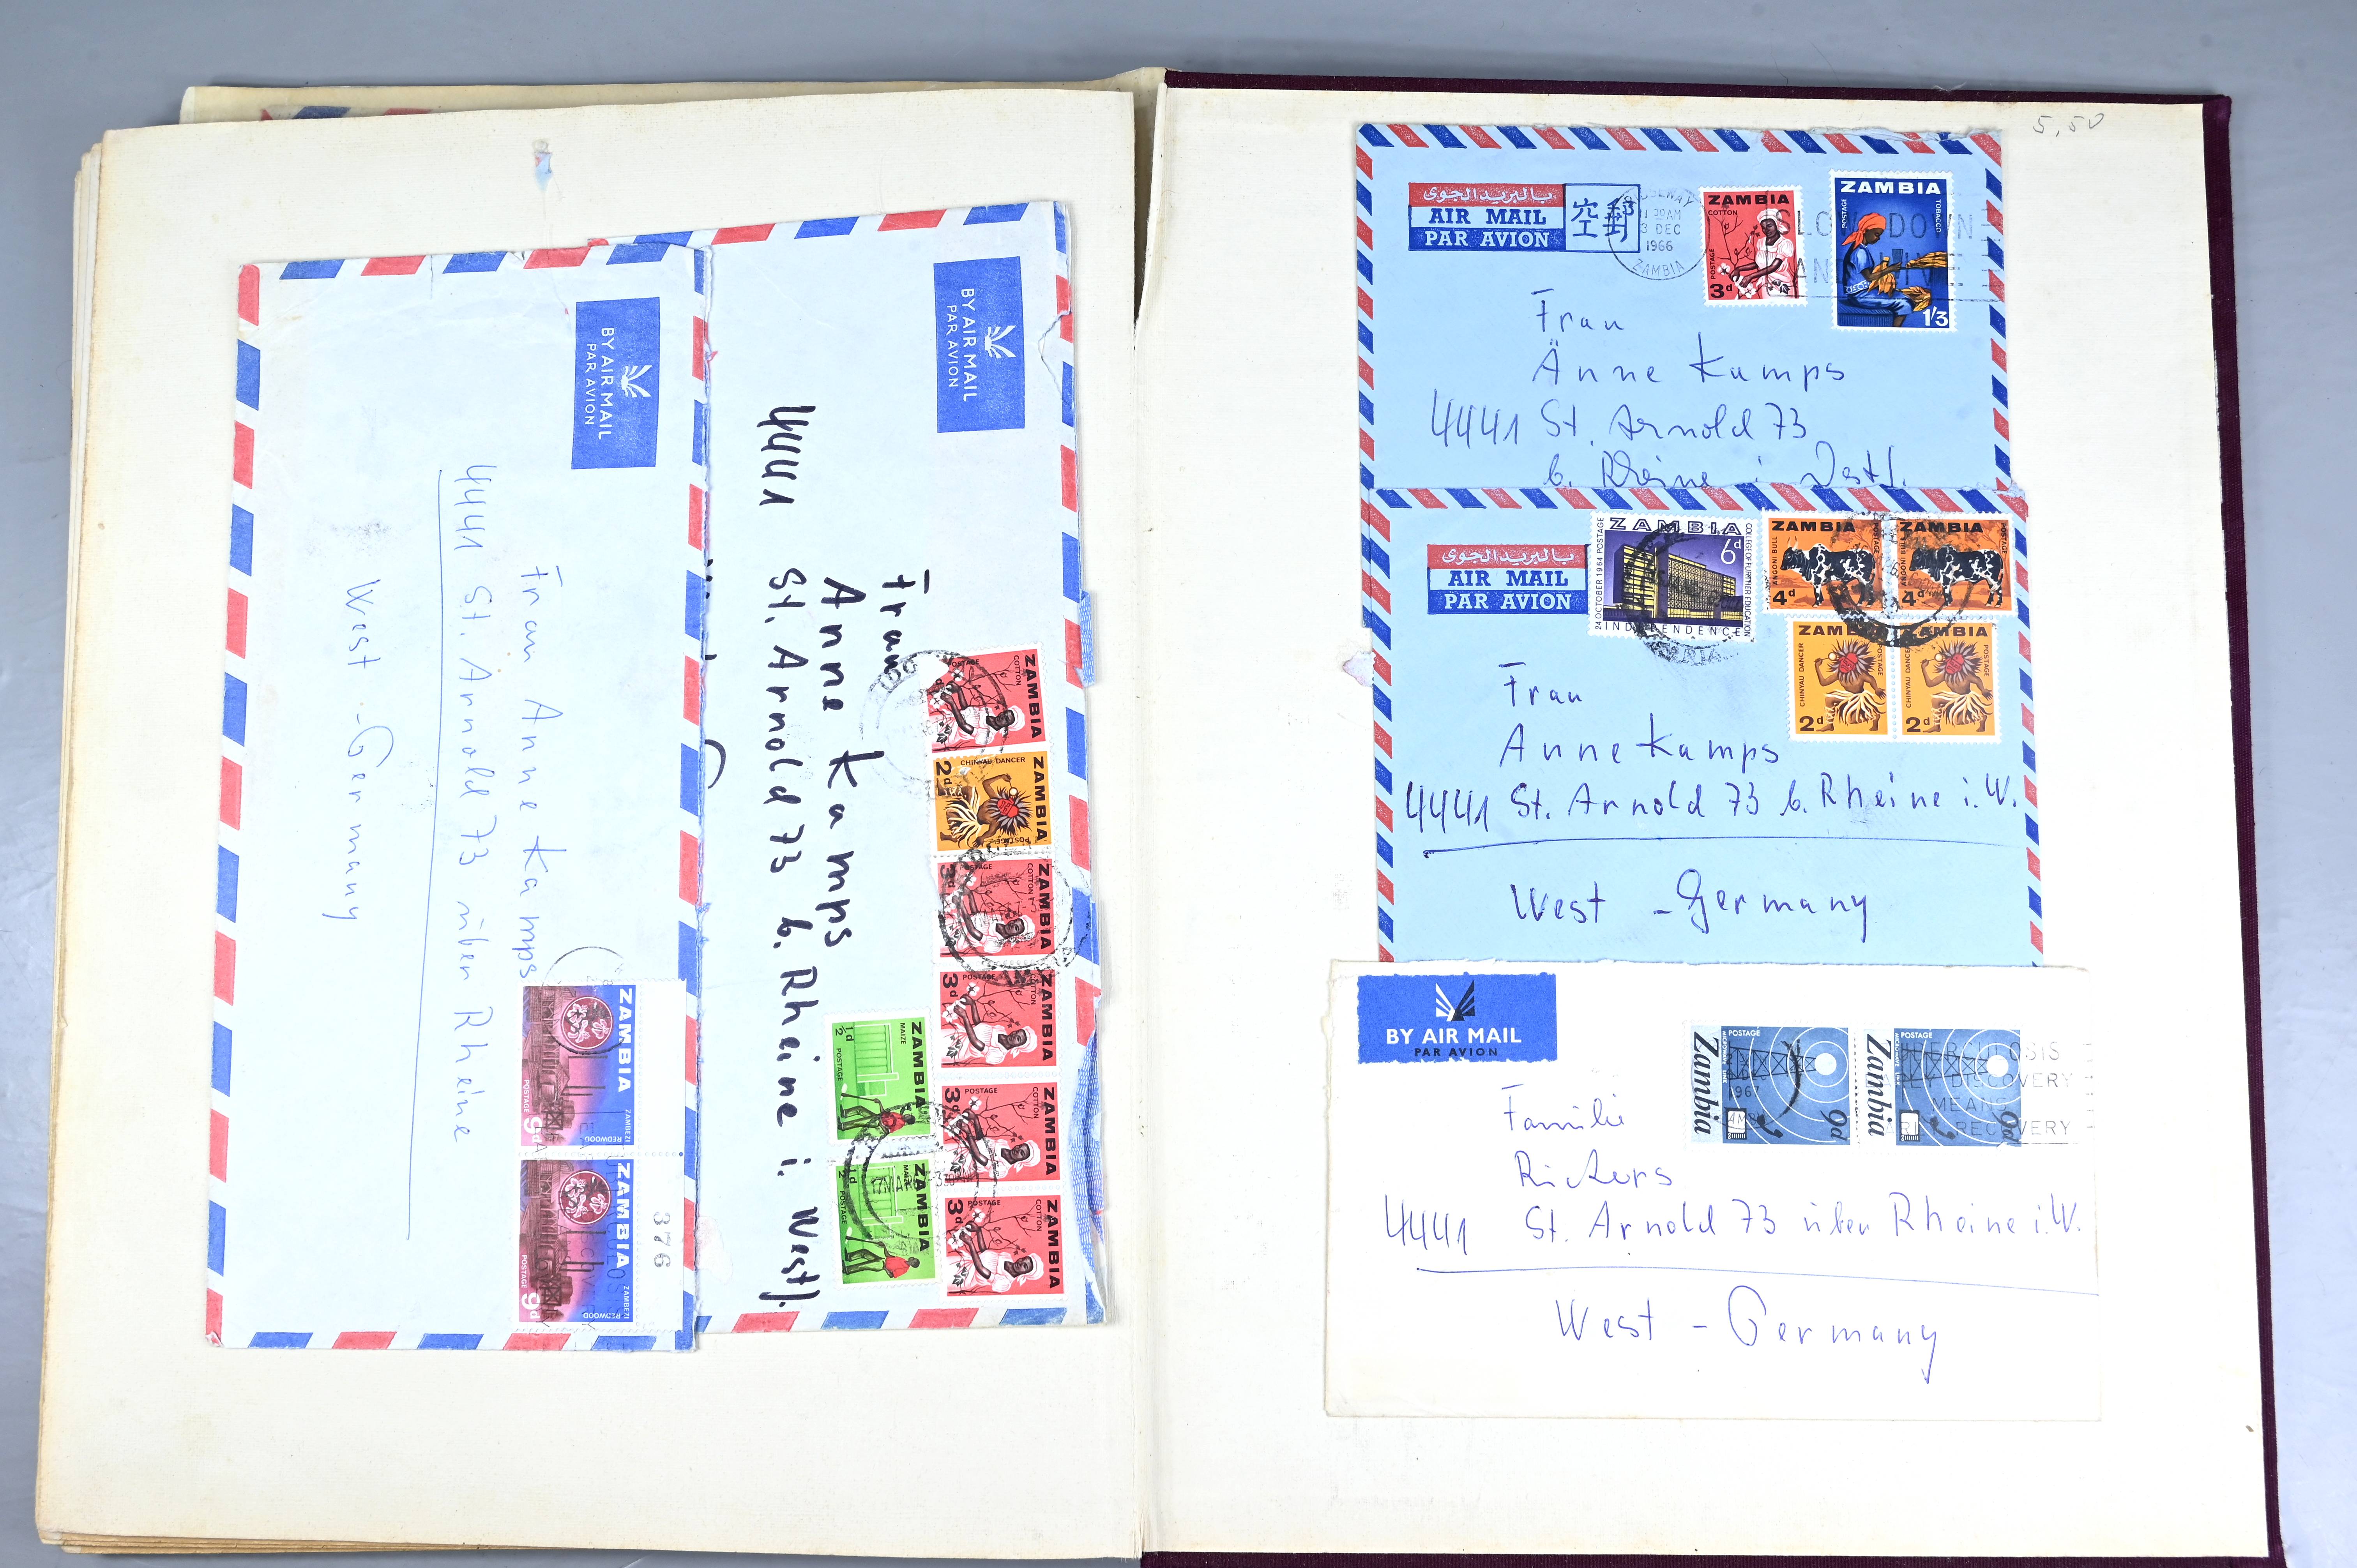 BY AIR MAIL
PAR AVION
Frau Anne Kamps
4441 St. Arnold 73 über Rheine
West-Germany
ZAMBIA
ZAMBEZI REDWOOD
POSTAGE
9d
ZAMBIA
ZAMBEZI REDWOOD
POSTAGE
9d
376
BY AIR MAIL
PAR AVION
Frau
Anne Kamps
4441 St. Arnold 73 b. Rheine i. Westf.
ZAMBIA
COTTON
POSTAGE
ZAMBIA
CHINYAU DANCER
POSTAGE
2d
ZAMBIA
COTTON
POSTAGE
3d
ZAMBIA
COTTON
POSTAGE
3d
ZAMBIA
COTTON
POSTAGE
3d
ZAMBIA
COTTON
POSTAGE
3d
ZAMBIA
MAIZE
POSTAGE
½d
ZAMBIA
MAIZE
POSTAGE
½d
17 MAR
5,50
بالبريد الجوى
AIR MAIL
PAR AVION
空郵
29AM
3 DEC
1966
ZAMBIA
ZAMBIA
COTTON
POSTAGE
3d
ZAMBIA
POSTAGE
TOBACCO
1/3
SLOW DOWN
AND
Frau
Änne Kamps
4441 St. Arnold 73
b. Rheine i. Westf.
بالبريد الجوى
AIR MAIL
PAR AVION
ZAMBIA
6d
24 OCTOBER 1964 POSTAGE
COLLEGE OF FURTHER EDUCATION
INDEPENDENCE
ZAMBIA
ANGONI BULL
POSTAGE
4d
ZAMBIA
ANGONI BULL
POSTAGE
4d
ZAMBIA
CHINYAU DANCER
POSTAGE
2d
ZAMBIA
CHINYAU DANCER
POSTAGE
2d
Frau
Anne Kamps
4441 St. Arnold 73 b. Rheine i. W.
West-Germany
BY AIR MAIL
PAR AVION
POSTAGE
Zambia
9d
POSTAGE
Zambia
9d
1967
TUBERCULOSIS
EARLY DISCOVERY
MEANS
RECOVERY
Familie
Rickers
4441 St. Arnold 73 über Rheine i. W.
West-Germany